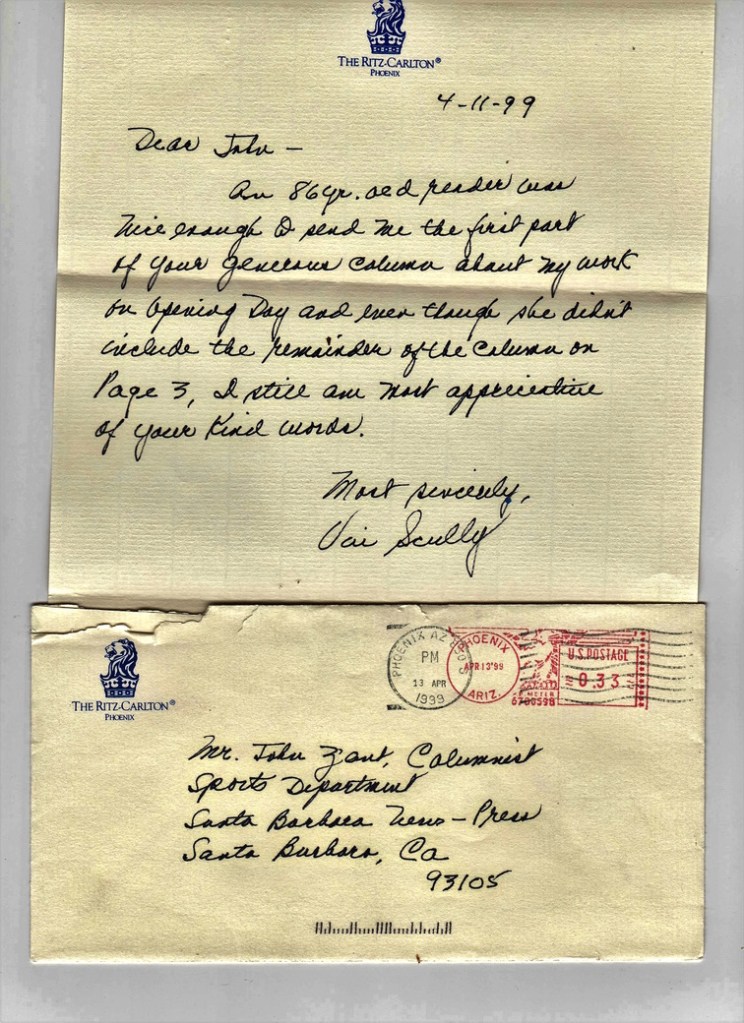 THE RITZ-CARLTON®
PHOENIX
4-11-99
Dear John —
An 86 yr. old reader was
nice enough to send me the first part
of your generous column about my work
on Opening Day and even though she didn't
include the remainder of the column on
Page 3, I still am most appreciative
of your kind words.
Most sincerely,
Vin Scully
THE RITZ-CARLTON®
PHOENIX
PHOENIX AZ 850
PM
13 APR
1999
PHOENIX
APR 13'99
ARIZ.
U.S. POSTAGE
0.33
METER
6760598
Mr. John Zant, Columnist
Sports Department
Santa Barbara News-Press
Santa Barbara, Ca
93105